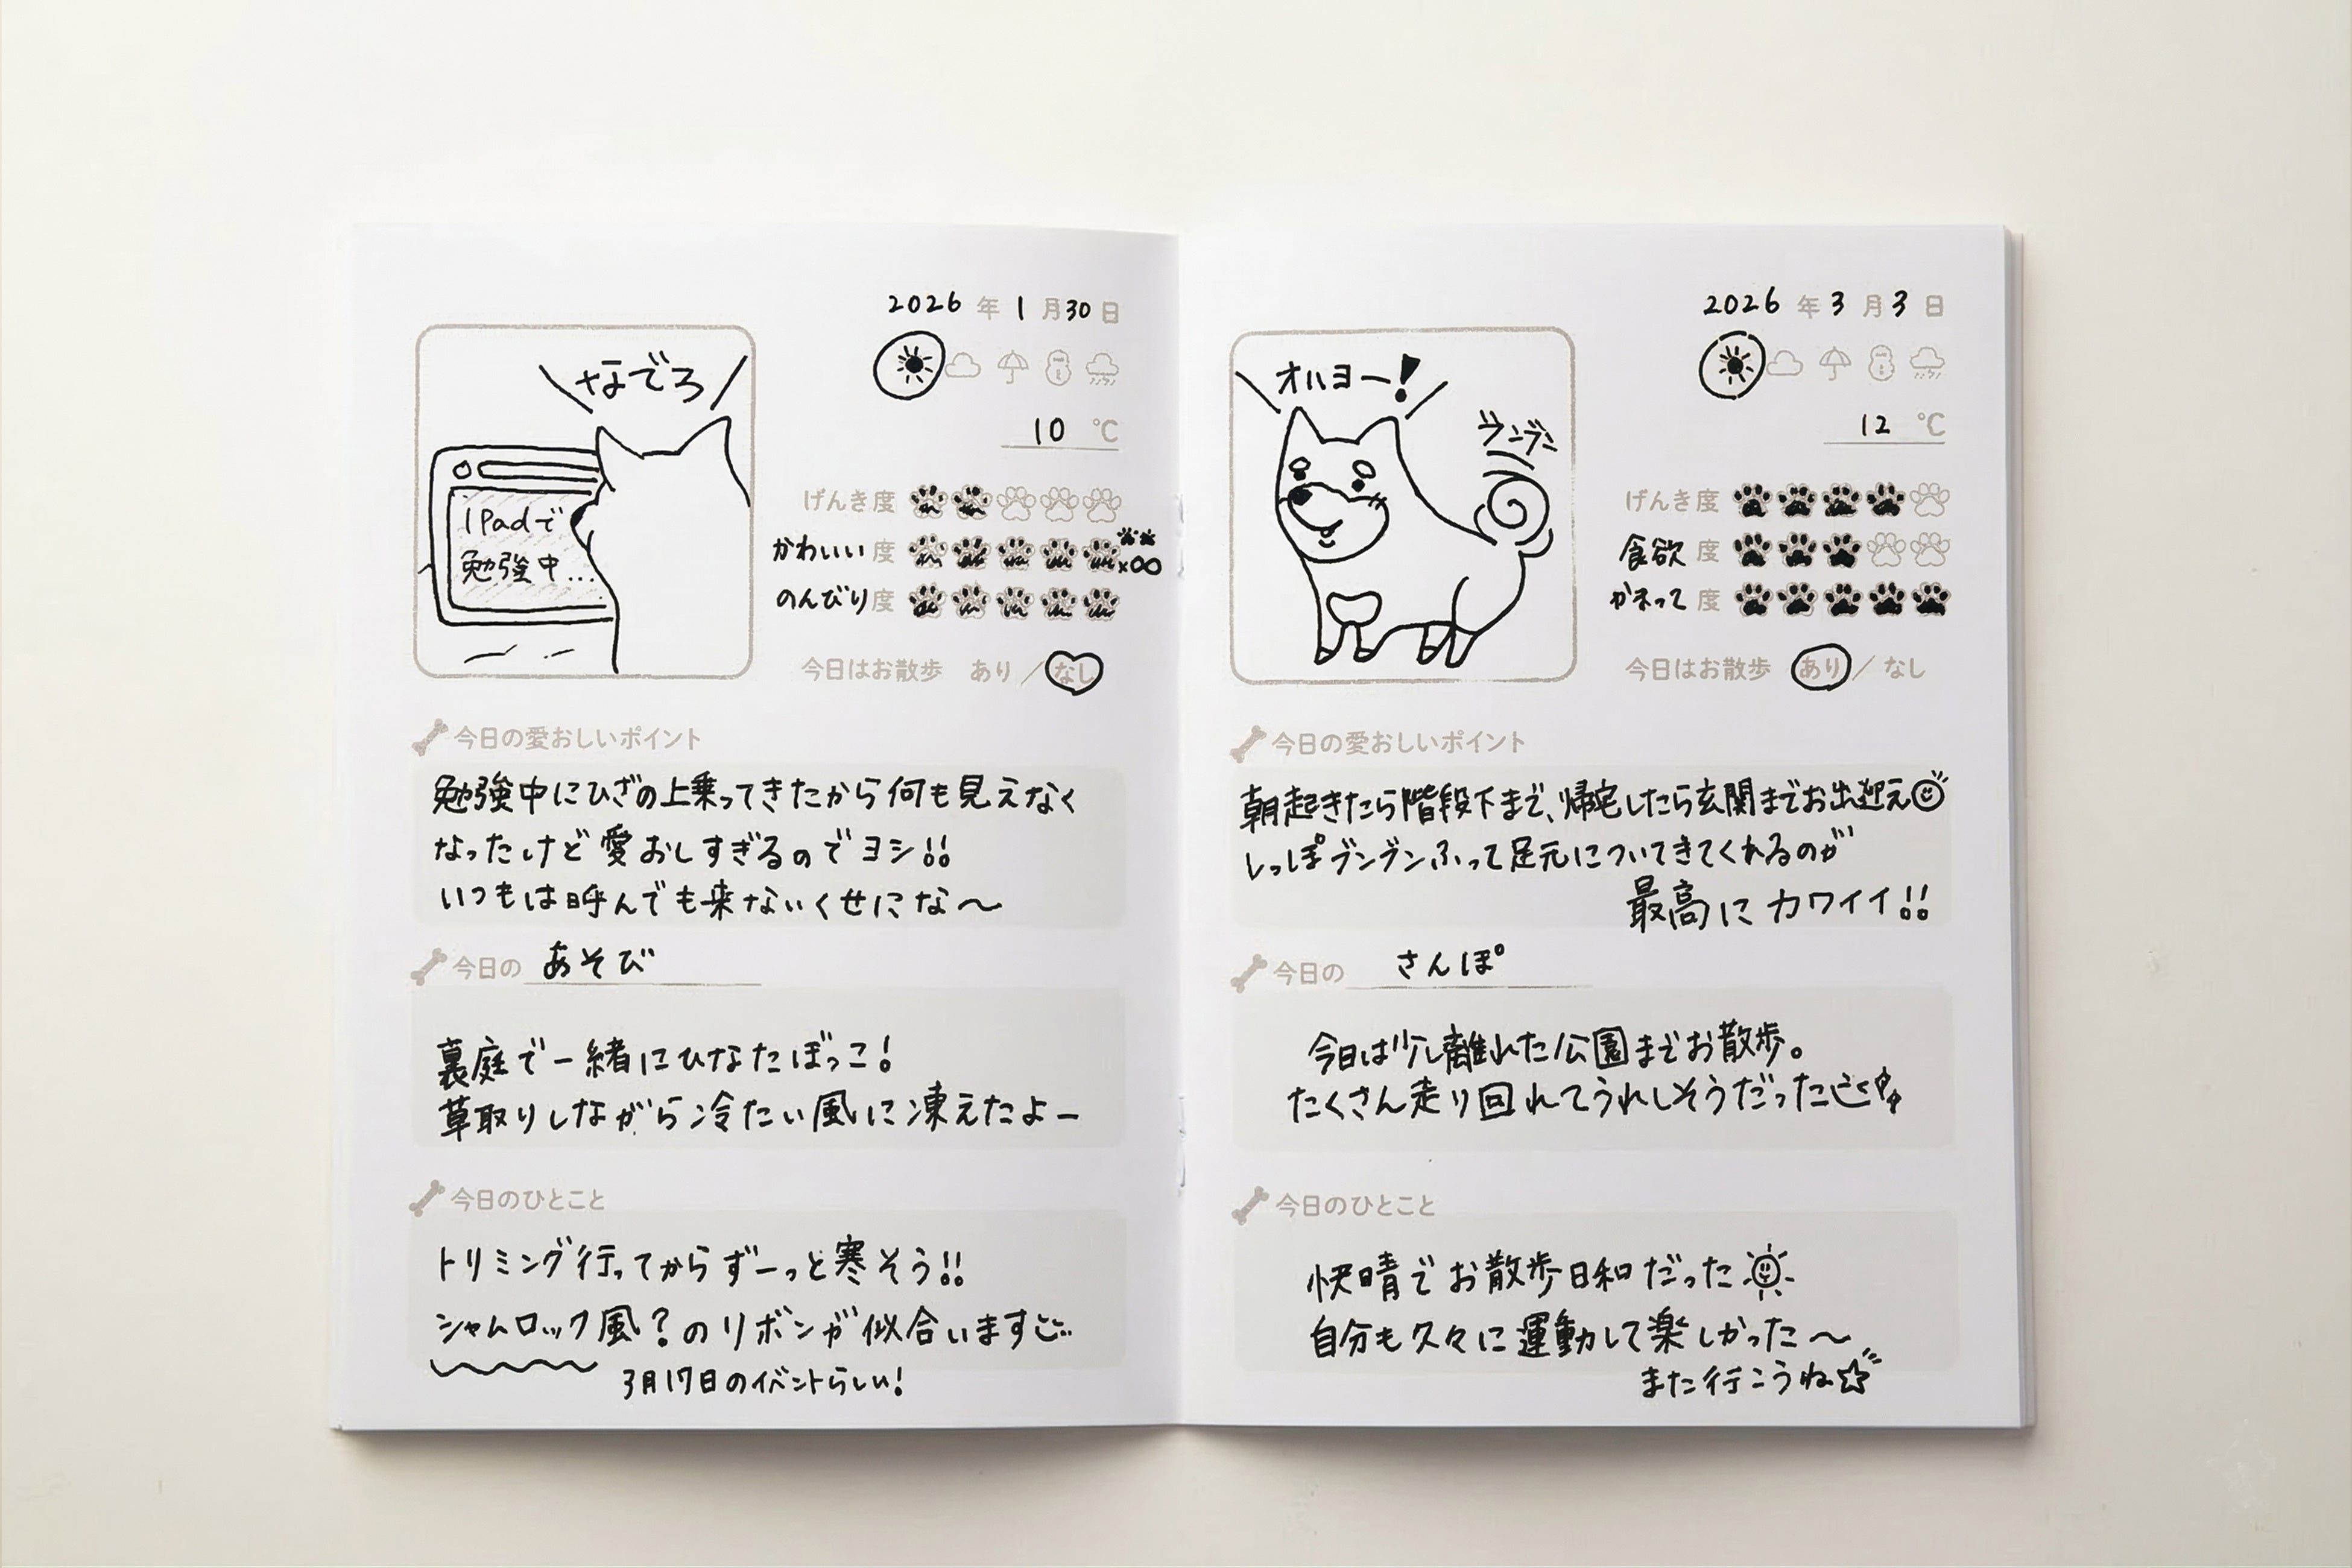 2026 年 1 月 30 日
\なでろ/
iPadで
勉強中...
10 ℃
げんき度
かわいい度 ×∞
のんびり度
今日はお散歩 あり/なし
今日の愛おしいポイント
勉強中にひざの上乗ってきたから何も見えなく
なったけど愛おしすぎるのでヨシ!!
いつもは呼んでも来ないくせにな〜
今日の あそび
裏庭で一緒にひなたぼっこ!
草取りしながら冷たい風に凍えたよー
今日のひとこと
トリミング行ってからずーっと寒そう!!
シャムロック風?のリボンが似合います
3月17日のイベントらしい!
2026 年 3 月 3 日
オハヨー!
ブンブン
12 ℃
げんき度
食欲度
かまって度
今日はお散歩 あり/なし
今日の愛おしいポイント
朝起きたら階段下まで、帰宅したら玄関までお出迎え
しっぽブンブンふって足元についてきてくれるのが
最高にカワイイ!!
今日の さんぽ
今日は少し離れた公園までお散歩。
たくさん走り回れてうれしそうだった
今日のひとこと
快晴でお散歩日和だった
自分も久々に運動して楽しかった〜
また行こうね☆